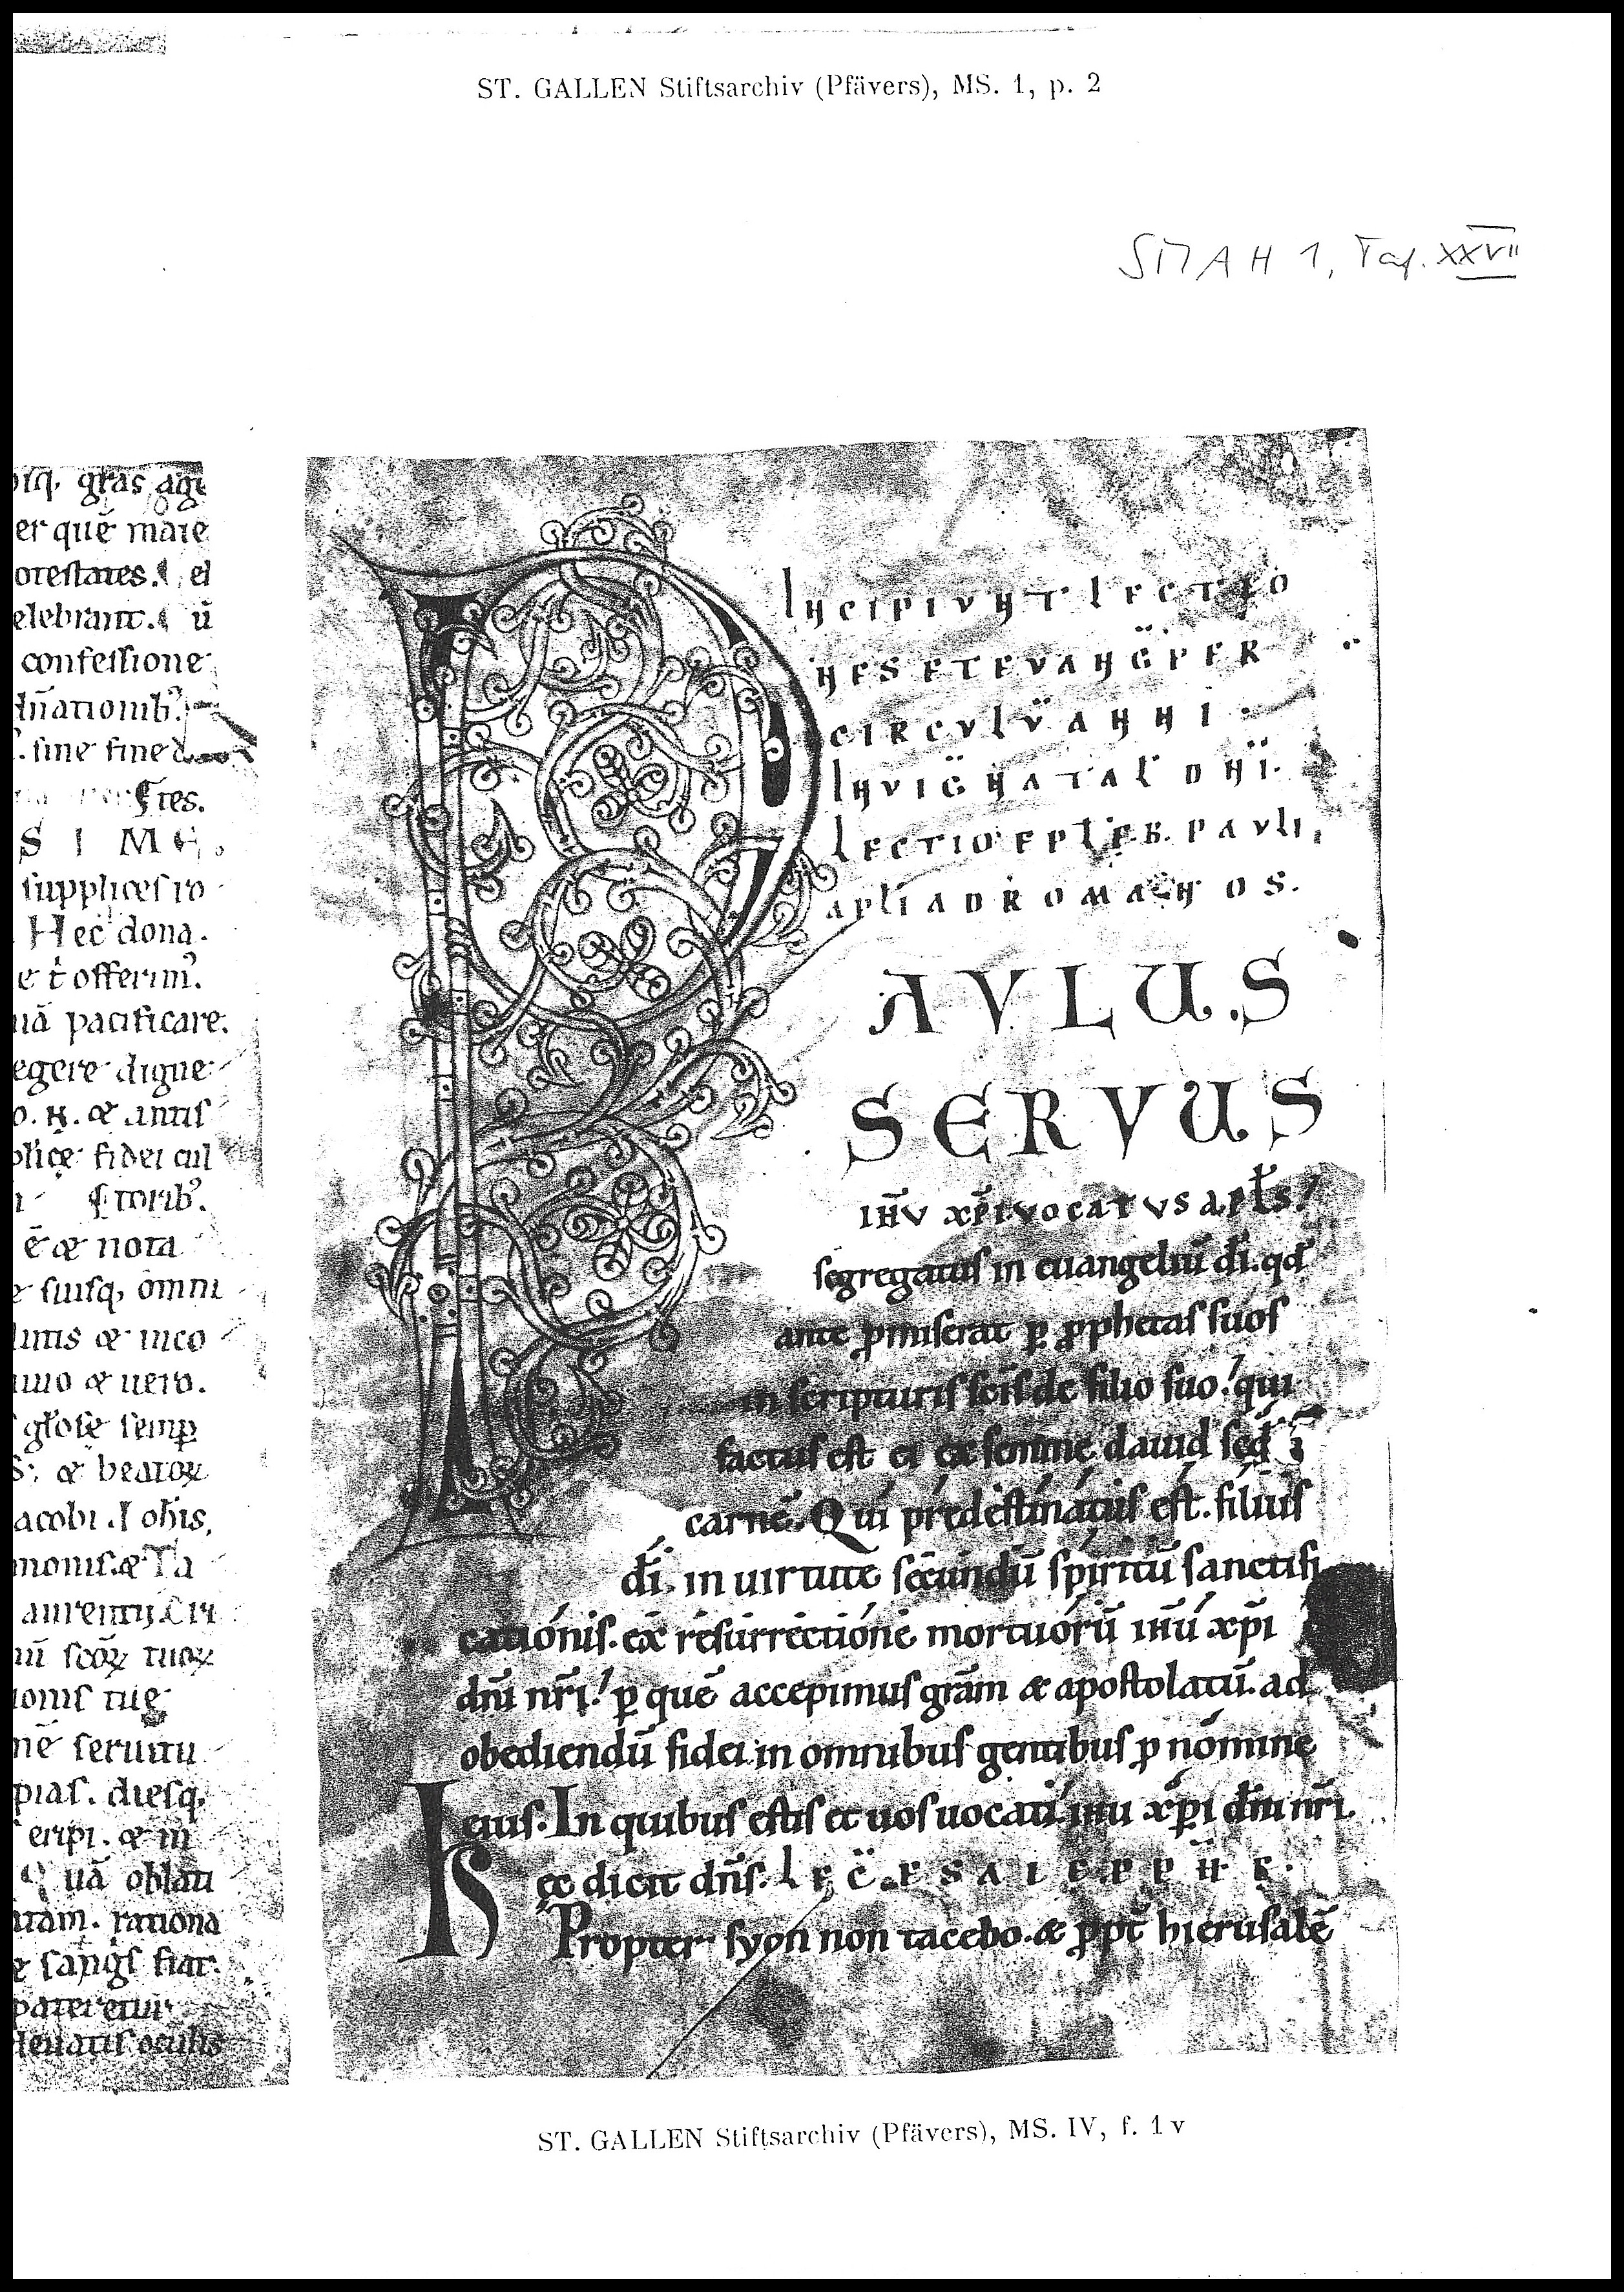 ST. GALLEN Stiftsarchiv (Pfävers), MS. 1, p. 2
SMAH 1, Taf. XXVII
gr̄as agı
er quē maıe
oteſtates. el
elebrant. ū
confeſſione
. ſine fine
S I M
ſupplıceſ ro
Hec̄ dona.
e t̄ offerim᾽.
uā pacificare.
egere digne
fidei cul
toribꝰ.
ē & nota
ſuiſq, omni
& inco
uıuo & uero.
gło̅ſe ſemꝑ
& beatoꝝ
acobi. Iohıs,
moniſ.&Ta
ſcōꝝ tuoꝝ
ſeruıtu
pıaſ. dieſq,
erıpi. & ın
uā oblatı
rationa
ſangſ fiat.
leuatıſ oculıs
INCIPIVNT LECTIO
NES ET EVANG̈ PER
CIRCVLV̄ ANNI.
IN VIG̈ NATAL̄ DN̈I.
LECTIO EPLĒ B. PAVLI
APLI AD ROMANOS.
AVLUS
SERVUS
IH̄V XP̄I VOCATVS APŁS.
ſegregatuſ in euangeliū dī. qd̄
ante ꝓmiſerat ꝑ ꝓphetaſ ſuoſ
in ſcripturiſ ſciſ̄ de filio ſuo. qui
factuſ eſt ei ex ſemine dauid ſed̄
carnē. Qui predeſtinatuſ eſt. filiuſ
dī. in uirtute ſecundū ſpiritū ſanctifi
cationiſ. ex reſurrectione mortuorū ih̄u xp̄i
dn̄i nr̄i. ꝑ quē accepimuſ grām & apoſtolatū. ad
obediendū fidei in omnibuſ gentibuſ ꝓ nomine
eiuſ. In quibuſ eſtiſ et uoſ uocati ih̄u xp̄i dn̄i nr̄i.
Hęc dicit dn̄ſ. LEC̄. ESAIE PPH̄E.
Propter ſyon non tacebo. & ꝓpt̄ hieruſalē
ST. GALLEN Stiftsarchiv (Pfävers), MS. IV, f. 1 v